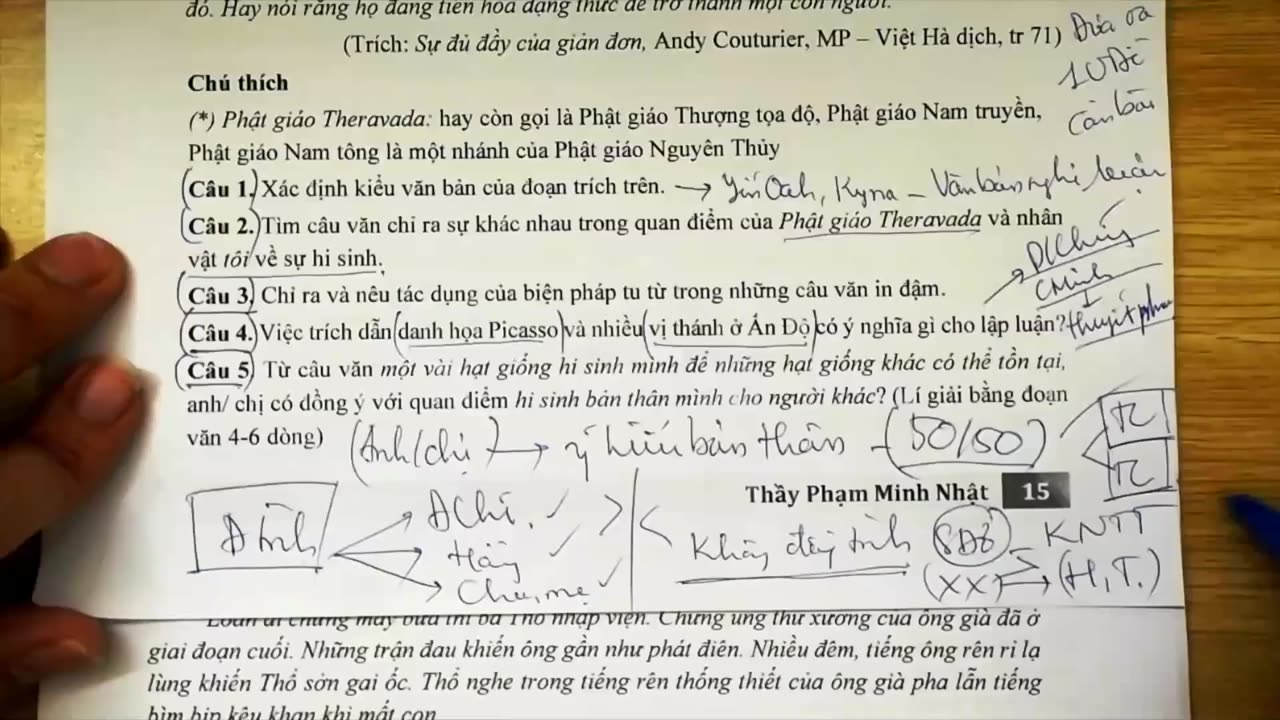 đó. Hay nói rằng họ đang tiến hóa dạng thức để trở thành một con người.
(Trích: Sự đủ đầy của giản đơn, Andy Couturier, MP – Việt Hà dịch, tr 71)
Đưa ra
1 VĐề
cần bàn
Chú thích
(*) Phật giáo Theravada: hay còn gọi là Phật giáo Thượng tọa độ, Phật giáo Nam truyền,
Phật giáo Nam tông là một nhánh của Phật giáo Nguyên Thủy
Câu 1. Xác định kiểu văn bản của đoạn trích trên. → Văn bản nghị luận
Câu 2. Tìm câu văn chỉ ra sự khác nhau trong quan điểm của Phật giáo Theravada và nhân
vật tôi về sự hi sinh.
D/Chứng
CMinh
Câu 3. Chỉ ra và nêu tác dụng của biện pháp tu từ trong những câu văn in đậm.
Câu 4. Việc trích dẫn danh họa Picasso và nhiều vị thánh ở Ấn Độ có ý nghĩa gì cho lập luận?
thuyết phục
Câu 5. Từ câu văn một vài hạt giống hi sinh mình để những hạt giống khác có thể tồn tại,
anh/ chị có đồng ý với quan điểm hi sinh bản thân mình cho người khác? (Lí giải bằng đoạn
văn 4-6 dòng) (Anh/chị) → ý hiểu bản thân - (50/50)
Thầy Phạm Minh Nhật 15
Đ tình
Không đồng tình
KNTT
(XX) (H,T.)
Loan đi chừng mấy bữa thì ba Thổ nhập viện. Chứng ung thư xương của ông già đã ở
giai đoạn cuối. Những trận đau khiến ông gần như phát điên. Nhiều đêm, tiếng ông rên rỉ lạ
lùng khiến Thổ sởn gai ốc. Thổ nghe trong tiếng rên thống thiết của ông già pha lẫn tiếng
bìm bịp kêu khan khi mất con